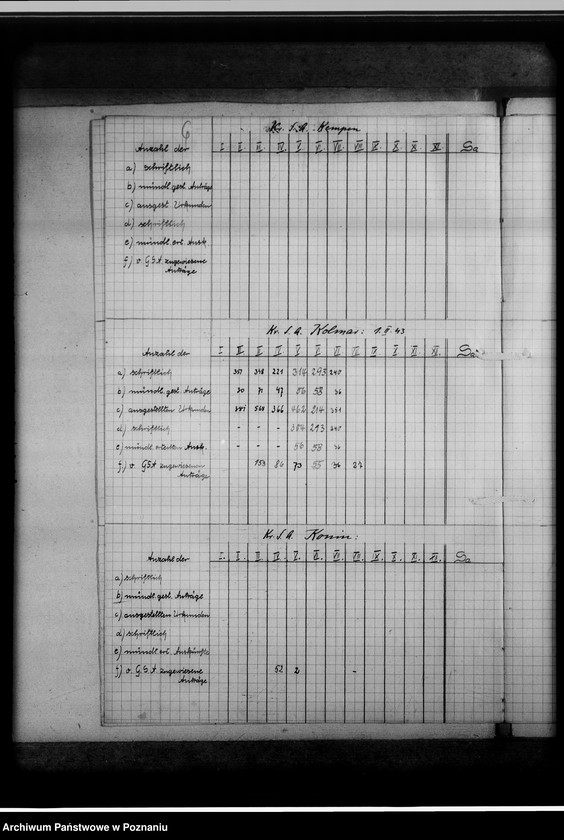 6
Kr. S.A. Kempen
Anzahl der I. II. III. IV. V. VI. VII. VIII. IX. X. XI. Sa
a) schriftlich
b) mündl. gest. Anträge
c) ausgest. Urkunden
d) schriftlich
e) mündl. ert. Ausk.
f) v. GSA zugewiesene
Anträge
Kr. S. A. Kolmar: 1. II. 43
Anzahl der Sa
a) schriftlich 348 221 314 293 240
b) mündl. gest. Anträge 30 71 47 56 58 36
c) ausgestellten Urkunden 568 366 462 214
d) schriftlich - - - 384 293 240
e) mündl. erteilten Ausk. - - - 56 58 36
f) v. GSA zugewiesenen 153 86 73 55 36 27
Anträge
Kr. S. A. Konin:
Anzahl der Sa
a) schriftlich
b) mündl. gest. Anträge
c) ausgestellten Urkunden
d) schriftlich
e) mündl. erl. Auskünfte
f) v. G.S.A zugewiesene 52 2 -
Anträge
Archiwum Państwowe w Poznaniu